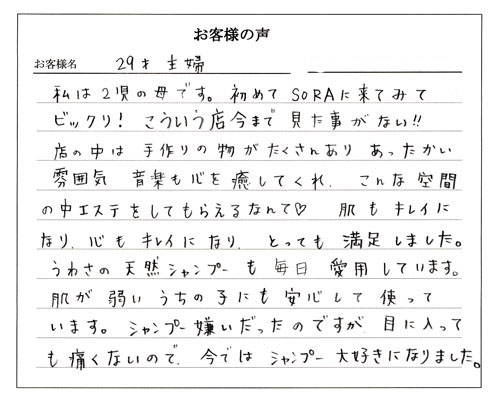 お客様の声
お客様名 29才 主婦
私は2児の母です。初めてSORAに来てみて
ビックリ！こういう店今まで見た事がない!!
店の中は手作りの物がたくさんあり あったかい
雰囲気 音楽も心を癒してくれ、こんな空間
の中エステをしてもらえるなんて♡ 肌もキレイに
なり、心もキレイになり、とっても満足しました。
うわさの天然シャンプーも毎日愛用しています。
肌が弱いうちの子にも安心して使って
います。シャンプー嫌いだったのですが、目に入って
も痛くないので、今ではシャンプー大好きになりました。